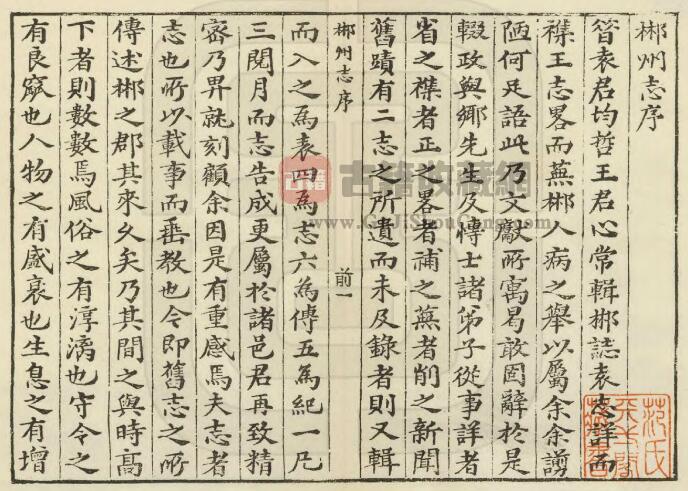 郴州志序
昝袁君均哲王君心常輯郴誌袁志詳而
襍王志畧而蕪郴人病之舉以屬余余謭
陋何足語此乃文獻所寓曷敢固辭於是
輟政與鄉先生及愽士諸弟子從事詳者
省之襍者正之畧者補之蕪者削之新聞
舊蹟有二志之所遺而未及錄者則又輯
郴州志序
前一
而入之為表四為志六為傳五為紀一凡
三閱月而志告成更屬於諸邑君再致精
宻乃畀就刻顧余因是有重感焉夫志者
志也所以載事而垂教也今即舊志之所
傳述郴之郡其來久矣乃其間之與時高
下者則數數焉風俗之有淳漓也守令之
有良窳也人物之有盛衰也生息之有增
古籍
古籍收藏網
www.GuJiShouCang.com
范氏天一閣藏書